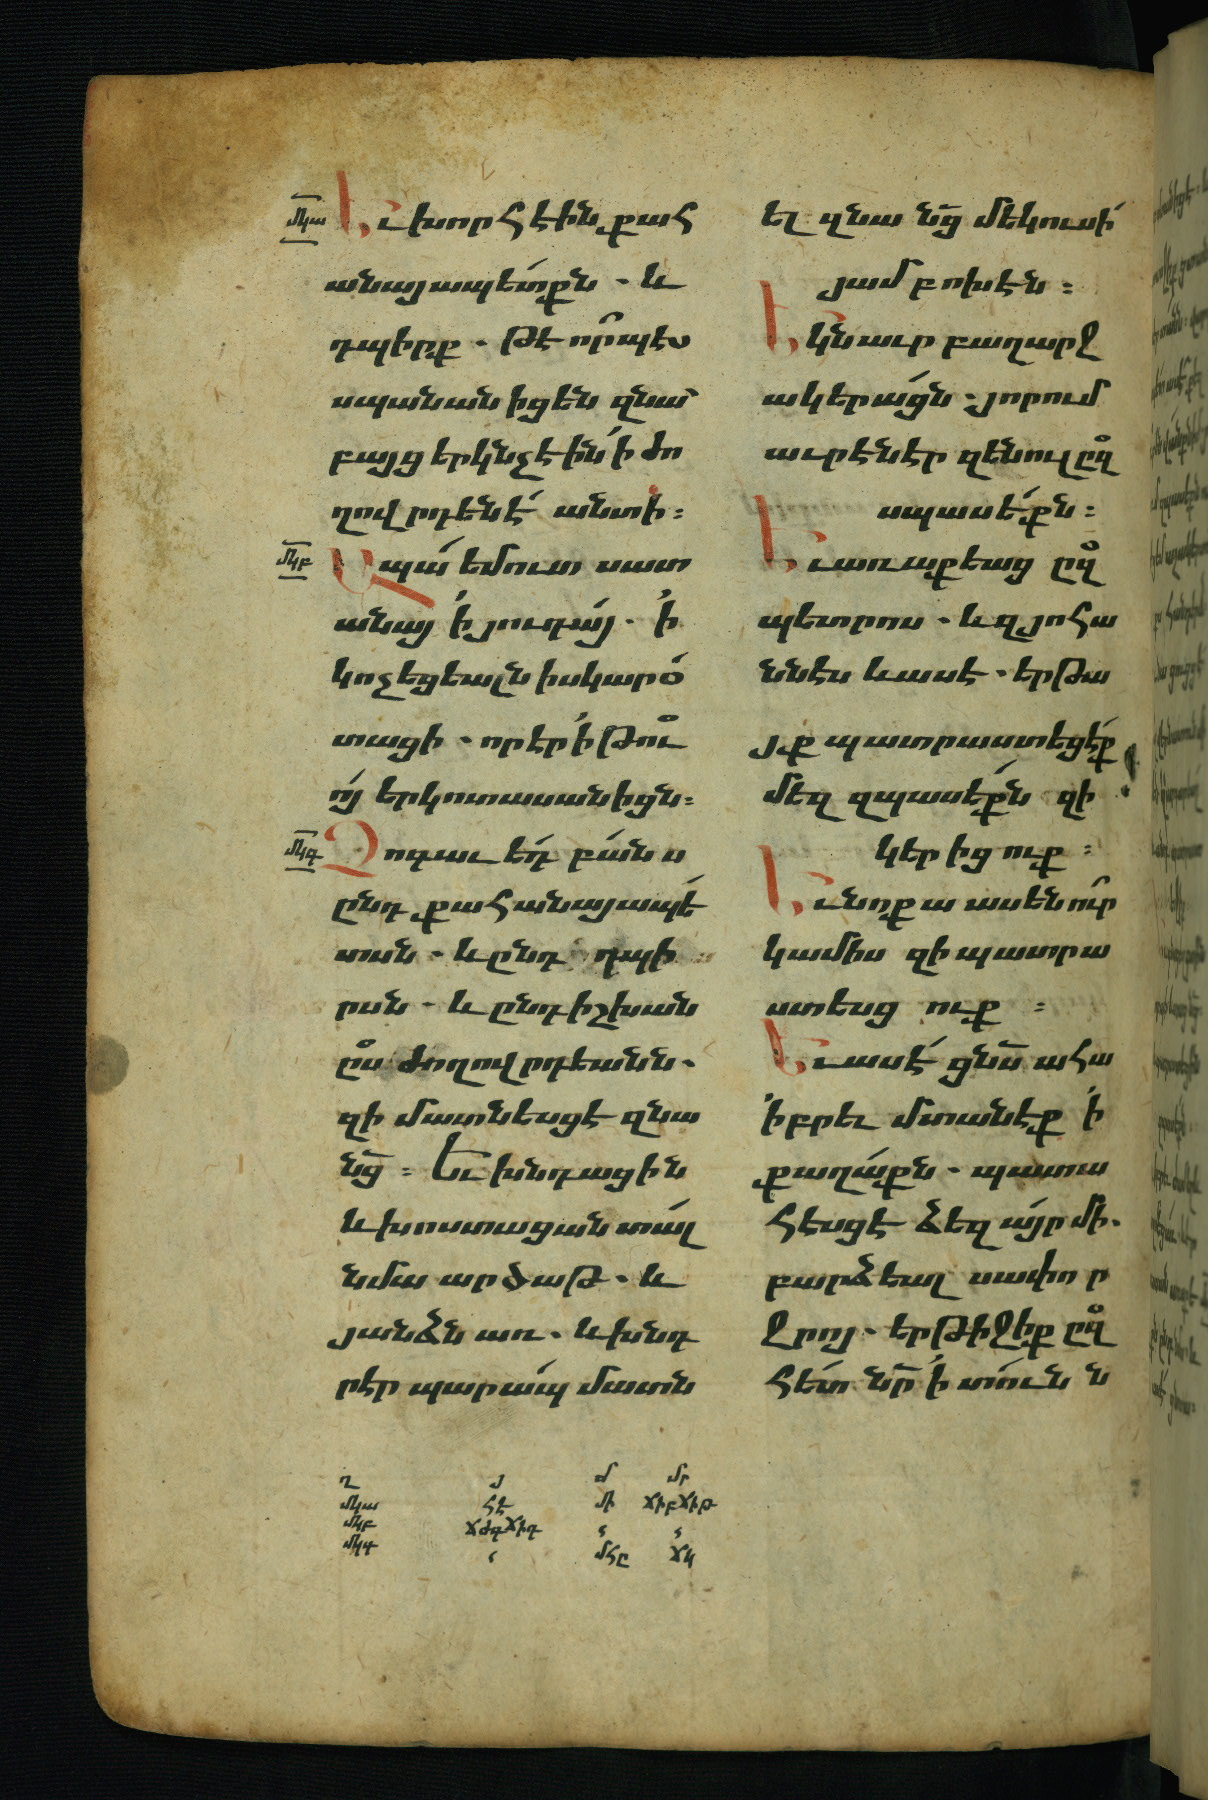 մկա Եւ խորհէին քահ
անայապետքն . և
դպիրք . թէ ո՞րպէս
սպանանիցեն զնա՞
բայց երկնչէին ի ժո
ղովրդենէ անտի :
մկբ Ապա եմուտ սատ
անայ ի յուդայ . ի
կոչեցեալն իսկարօ
տացի . որ էր ի թու
ոյ երկոտասանիցն :
մկգ Չոգաւ եդ բանս
ընդ քահանայապե
տսն . և ընդ դպի
րսն . և ընդ իշխան
ըս ժողովրդեանն .
զի մատնեսցէ զնա
նց : Եւ խնդացին
և խոստացան տալ
նմա արծաթ . և
յանձն առ . և խնդ
րէր պարապ մատն
ել զնա նց մեկուսի
յամբոխէն :
Եկն աւր բաղարջ
ակերացն . յորում
աւրէն էր զենուլ ըզ
սպասեքն :
Եւ առաքեաց ըզ
պետրոս . և զյոհա
ննէս և ասէ . երթա
յք պատրաստեցէք
մեզ զպասեքն զի
կերիցուք :
Եւ նոքա ասեն ու՞ր
կամիս զի պատրա
ստեսցուք :
Եւ ասէ ցնս ահա
իբրեւ մտանէք ի
քաղաքն . պատա
հեսցէ ձեզ այր մի .
բարձեալ սափոր
ջրոյ . երթիջիք ըզ
հետ նր ի տունն
ղ յ մ մր
մկա հէ մի ճիբճիթ
մկբ ճժգճիդ
մկգ մհը ճկ